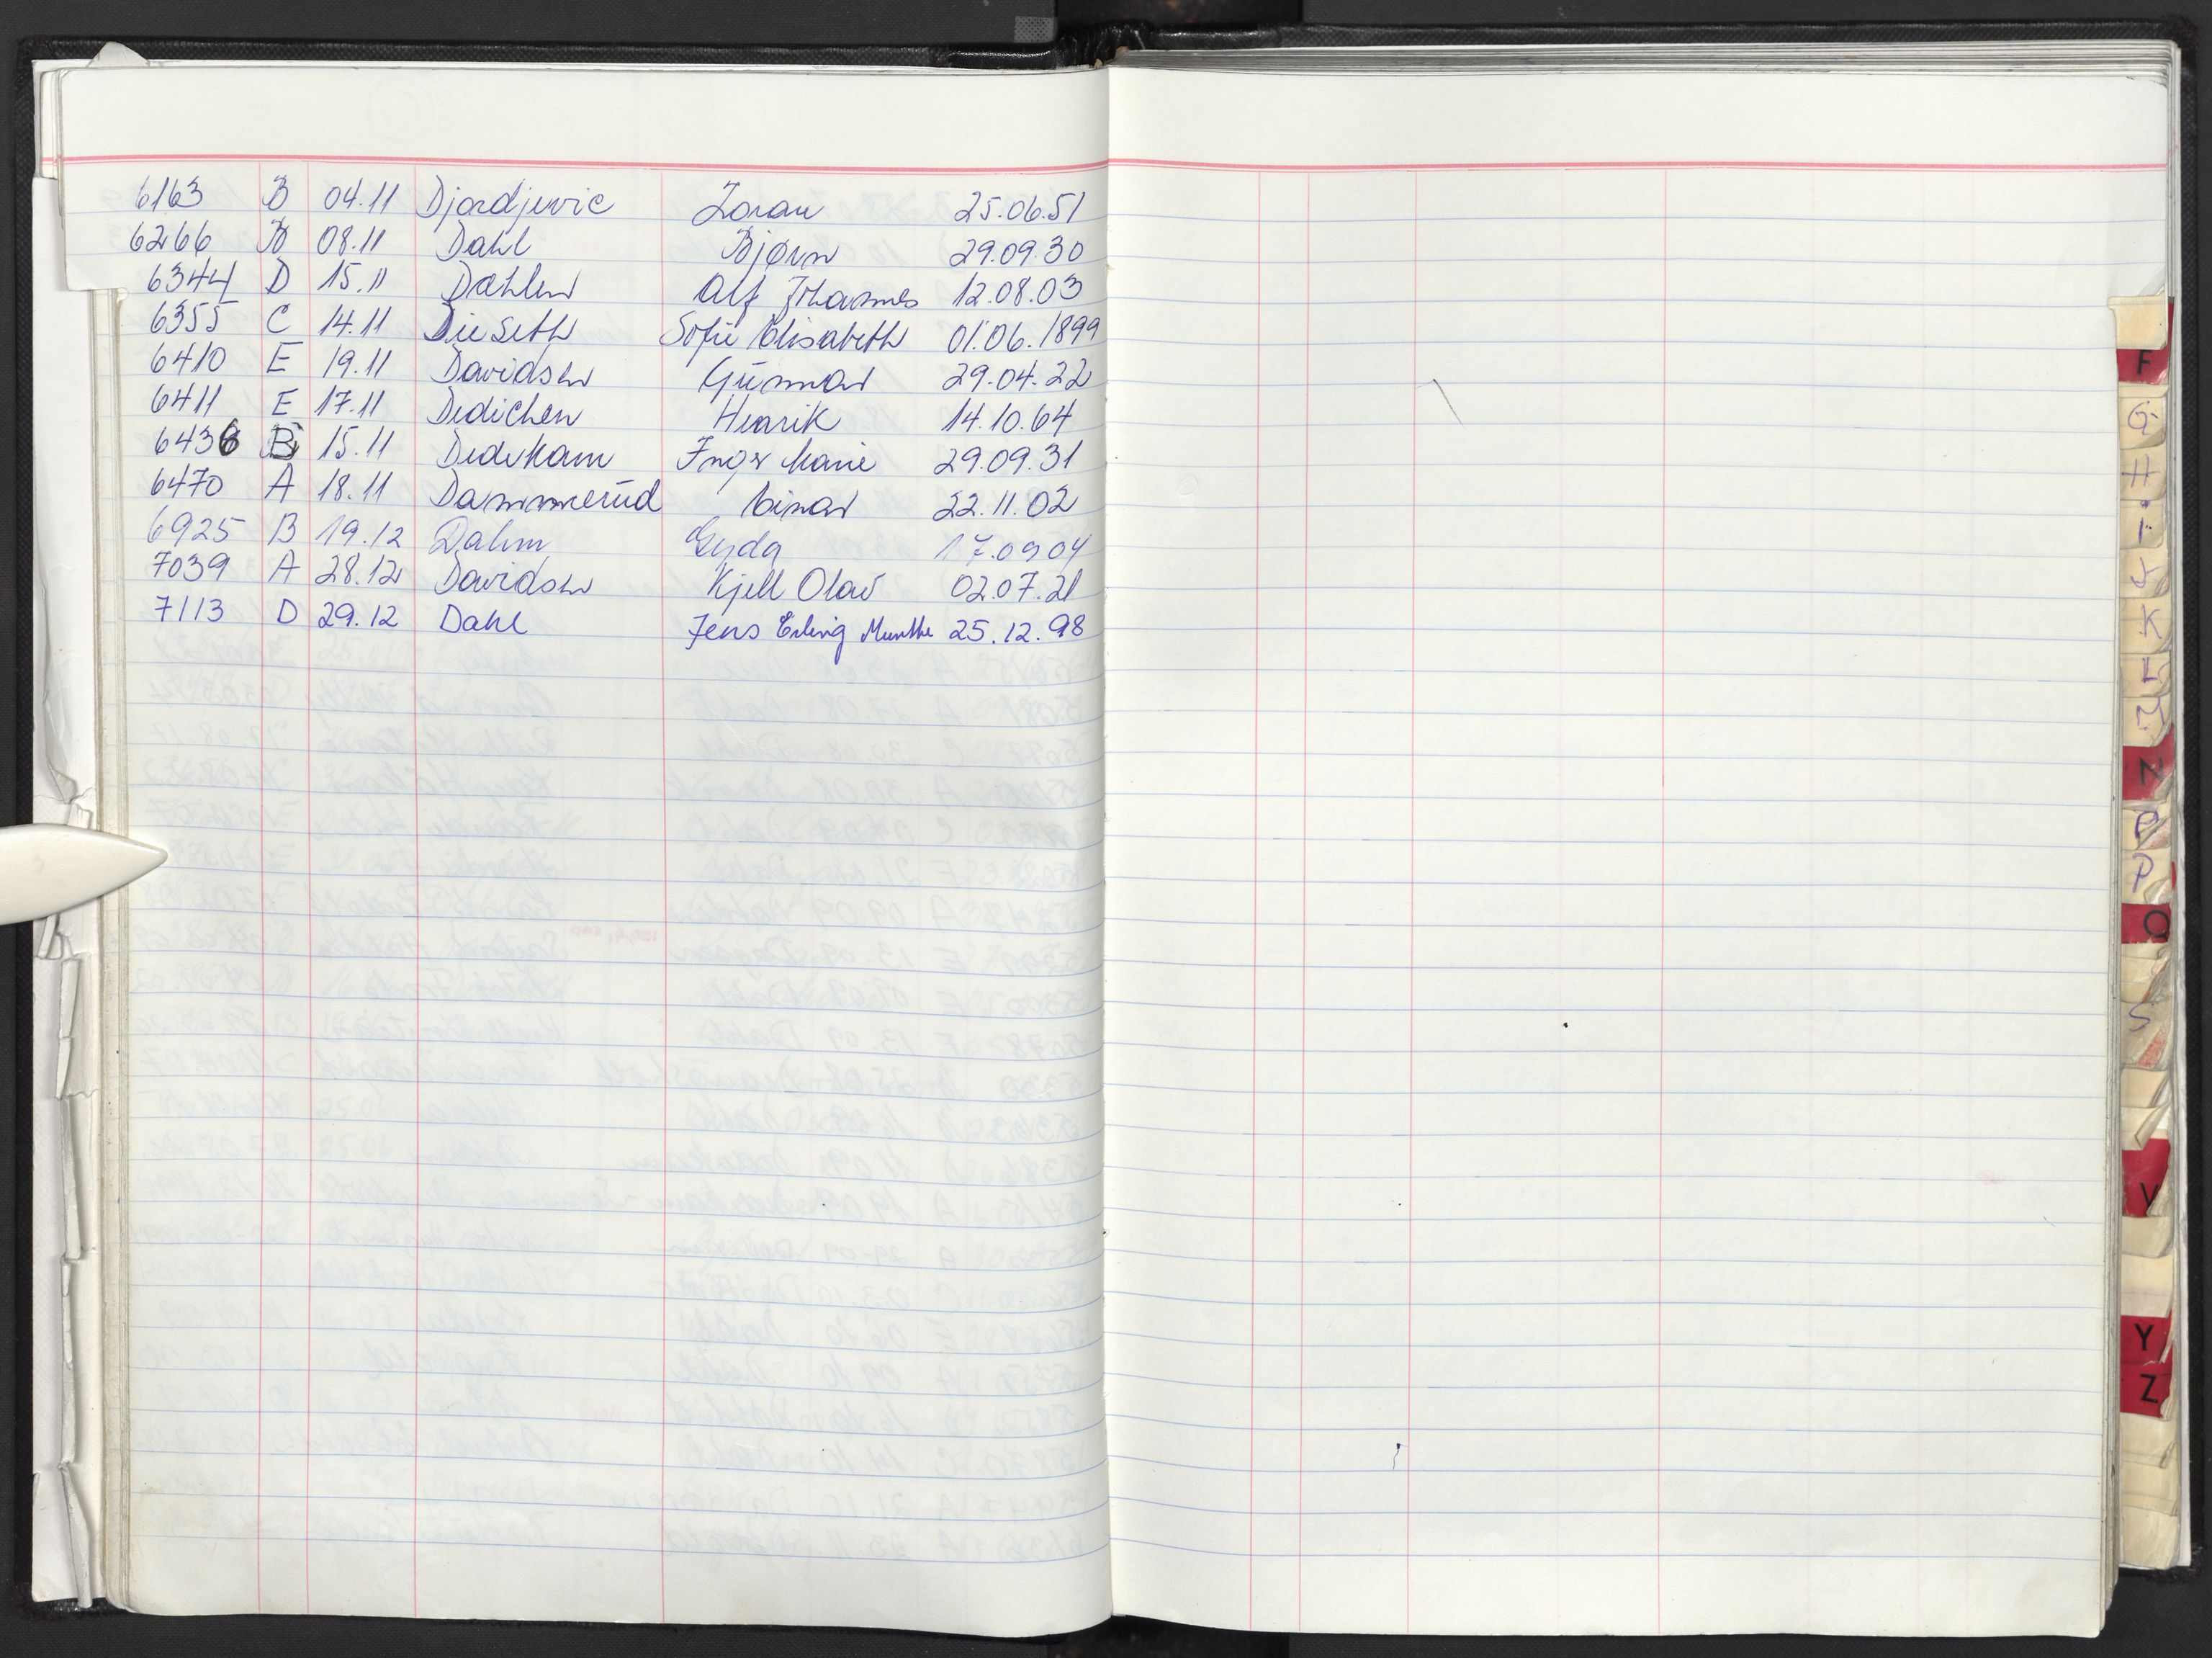 6163 B 04.11 Djordjevic Zoran 25.06.51
6266 B 08.11 Dahl Bjørn 29.09.30
6344 D 15.11 Dahlen Alf Johannes 12.08.03
6355 C 14.11 Dieseth Sofie Elisabeth 01.06.1899
6410 E 19.11 Davidsen Gunnar 29.04.22
6411 E 17.11 Dedichen Henrik 14.10.64
6436 B 15.11 Dedekam Inger Marie 29.09.31
6470 A 18.11 Dammerud Einar 22.11.02
6925 B 19.12 Dahm Gyda 17.09 04
7039 A 28.12 Davidsen Kjell Olav 02.07.21
7113 D 29.12 Dahl Jens Erling Munthe 25.12.98
F
G
H
I
J
K
L
M
N
P
Q
S
V
Y
Z